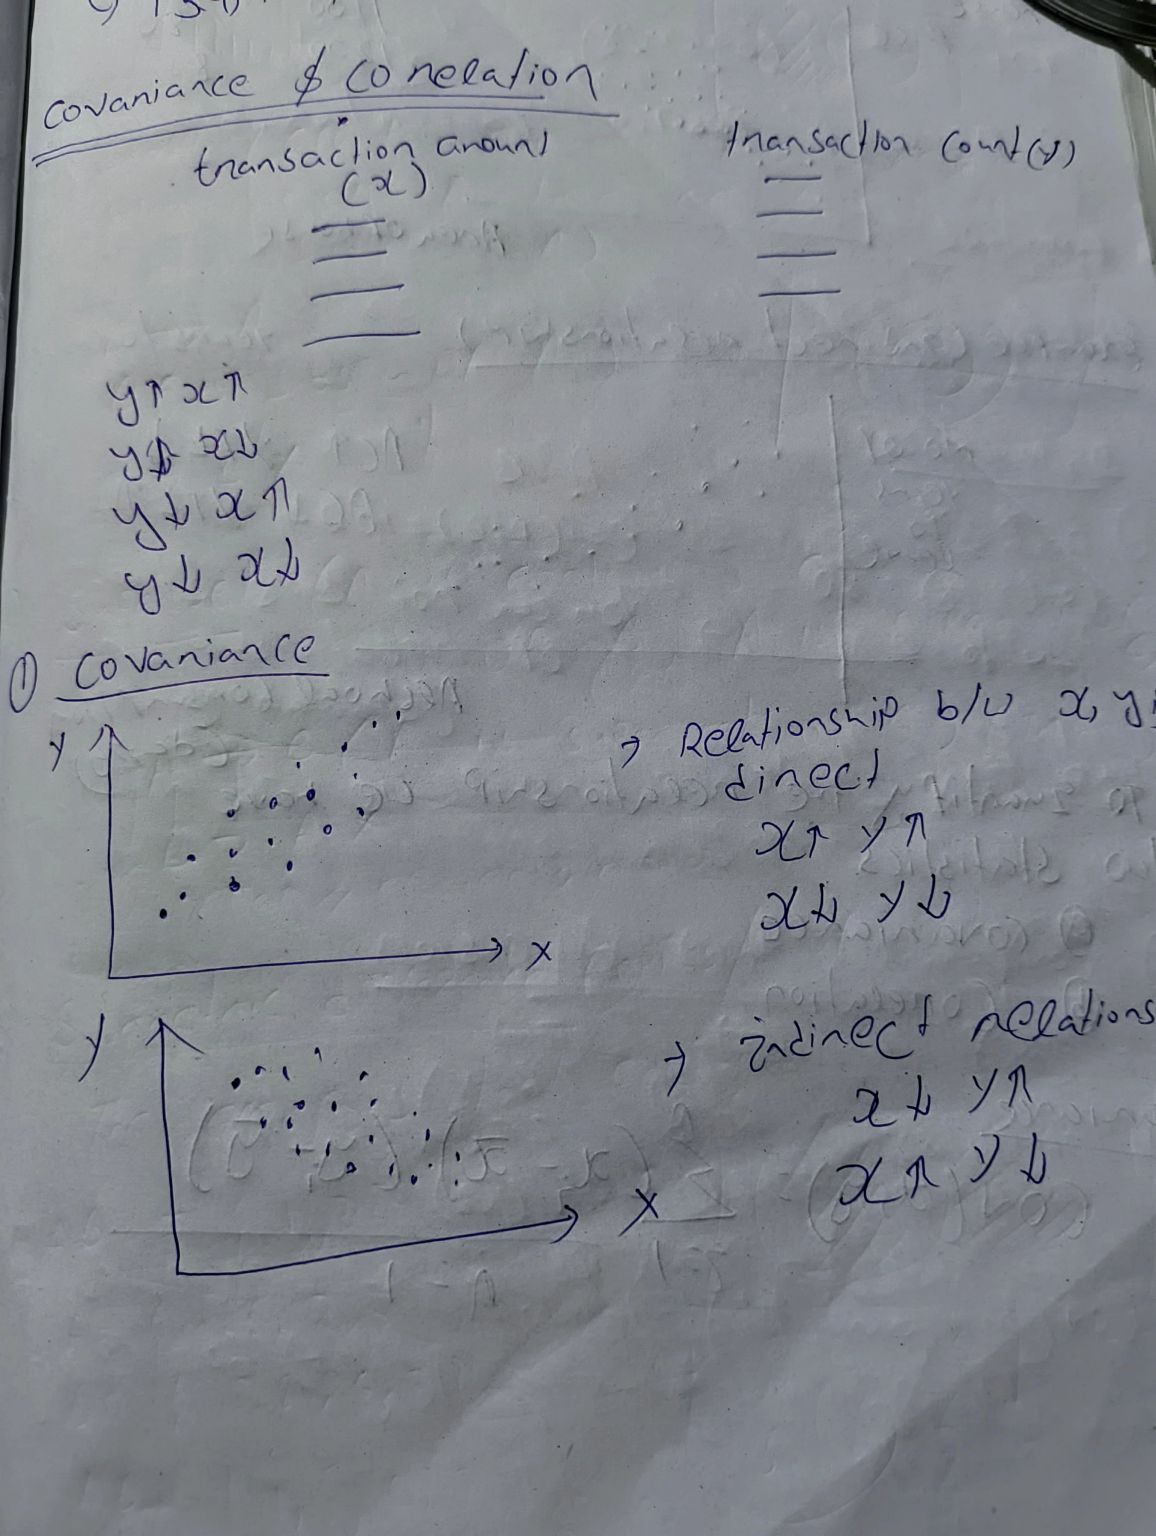 Covariance & Correlation
transaction amount
(x)
transaction count (y)
y↑ x↑
y↑ x↓
y↓ x↑
y↓ x↓
① Covariance
y
x
→ Relationship b/w x, y
direct
x↑ y↑
x↓ y↓
y
x
→ indirect relations
x↓ y↑
x↑ y↓